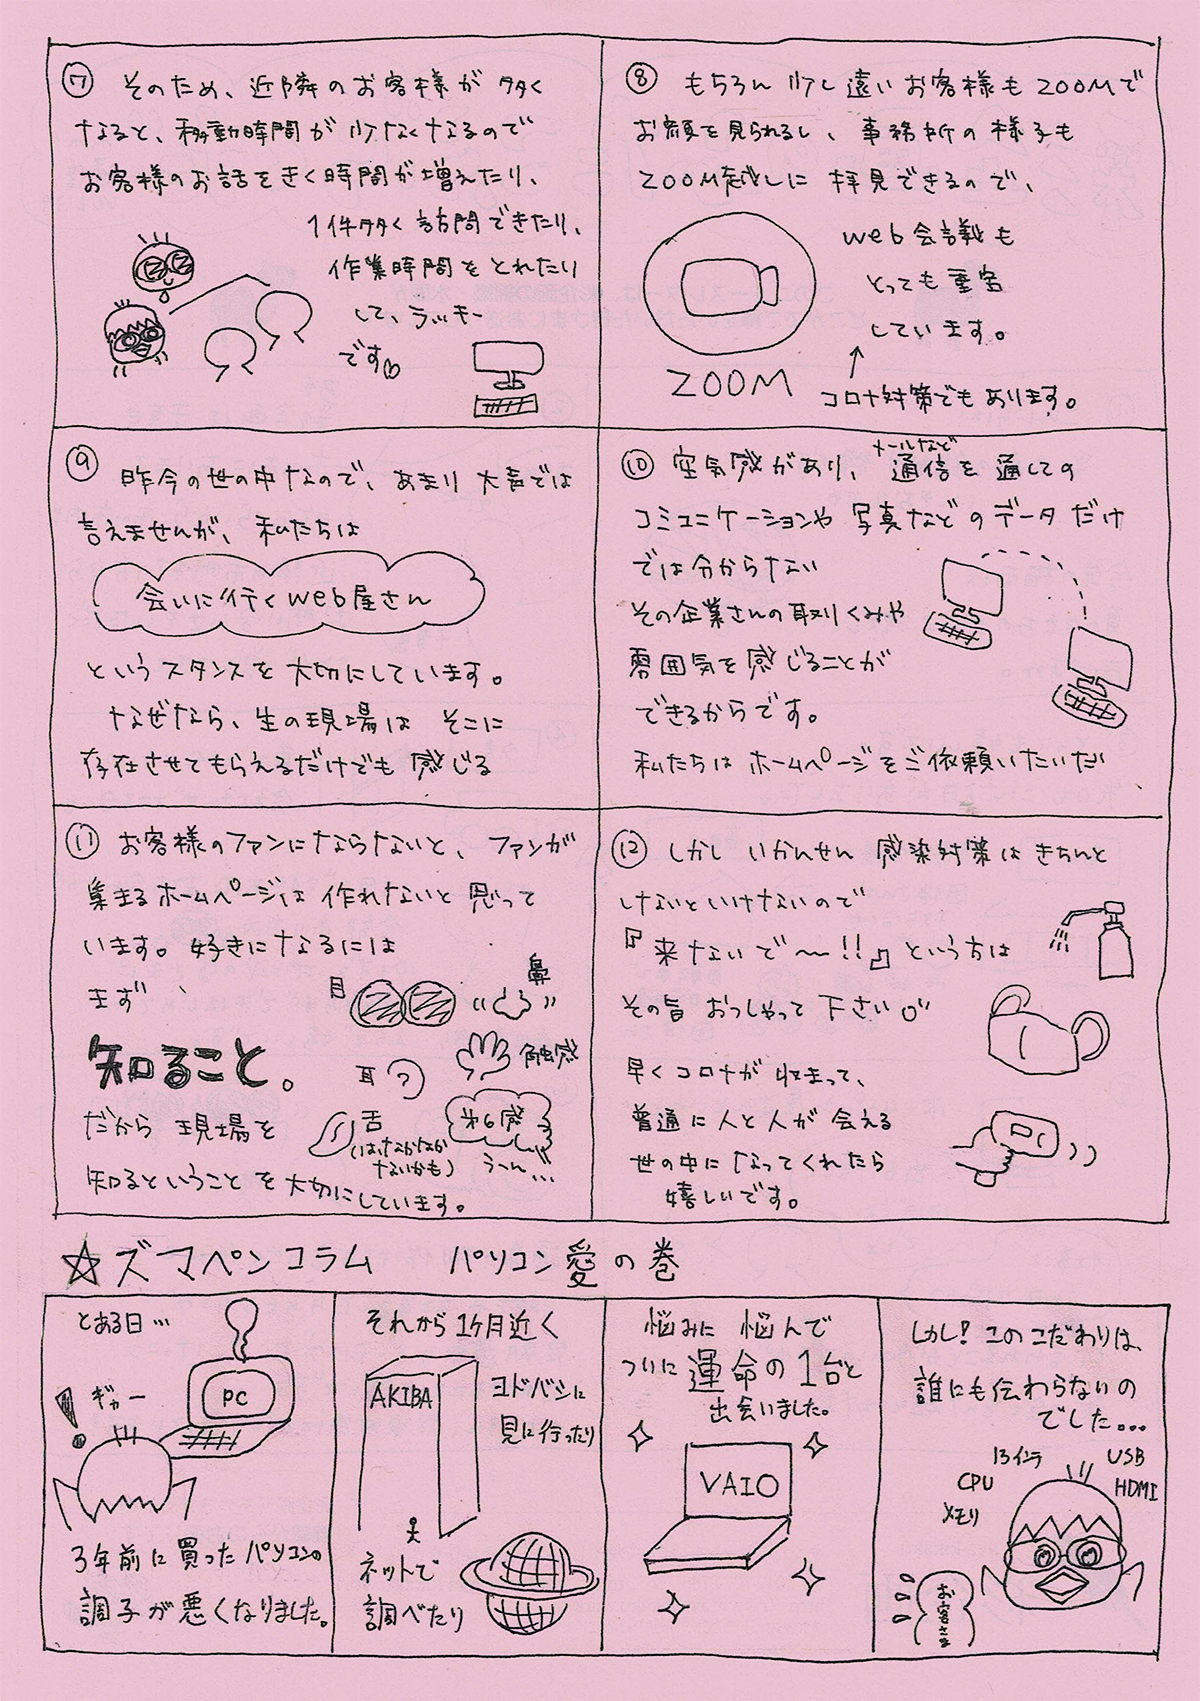 ⑦ そのため、近隣のお客様が多く
なると、移動時間が少なくなるので
お客様のお話をきく時間が増えたり、
1件多く訪問できたり、
作業時間をとれたり
して、ラッキー
です♡
⑧ もちろん少し遠いお客様もZOOMで
お顔を見られるし、事務所の様子も
ZOOM越しに拝見できるので、
web会議も
とっても重宝
しています。
ZOOM
コロナ対策でもあります。
⑨ 昨今の世の中なので、あまり大声では
言えませんが、私たちは
会いに行くweb屋さん
というスタンスを大切にしています。
なぜなら、生の現場は そこに
存在させてもらえるだけでも感じる
⑩ 空気感があり、メールなど通信を通しての
コミュニケーションや写真などのデータだけ
では分からない
その企業さんの取りくみや
雰囲気を感じることが
できるからです。
私たちはホームページをご依頼いたいだ
⑪ お客様のファンにならないと、ファンが
集まるホームページは作れないと思って
います。好きになるには
まず
目
鼻
知ること。
耳
触感
だから現場を
舌
(はなかなか
ないかも)
第6感
うーん…
知るということを大切にしています。
⑫ しかし いかんせん 感染対策はきちんと
しないといけないので
『来ないで〜!!』という方は
その旨おっしゃって下さい
早くコロナが収まって、
普通に人と人が会える
世の中になってくれたら
嬉しいです。
☆ズマペンコラム パソコン愛の巻
とある日…
PC
ギャー
3年前に買ったパソコンの
調子が悪くなりました。
それから1ヶ月近く
AKIBA
ヨドバシに
見に行ったり
ネットで
調べたり
悩みに悩んで
ついに運命の1台と
出会いました。
VAIO
しかし!このこだわりは、
誰にも伝わらないの
でした...
13インチ
CPU
メモリ
USB
HDMI
お客さま